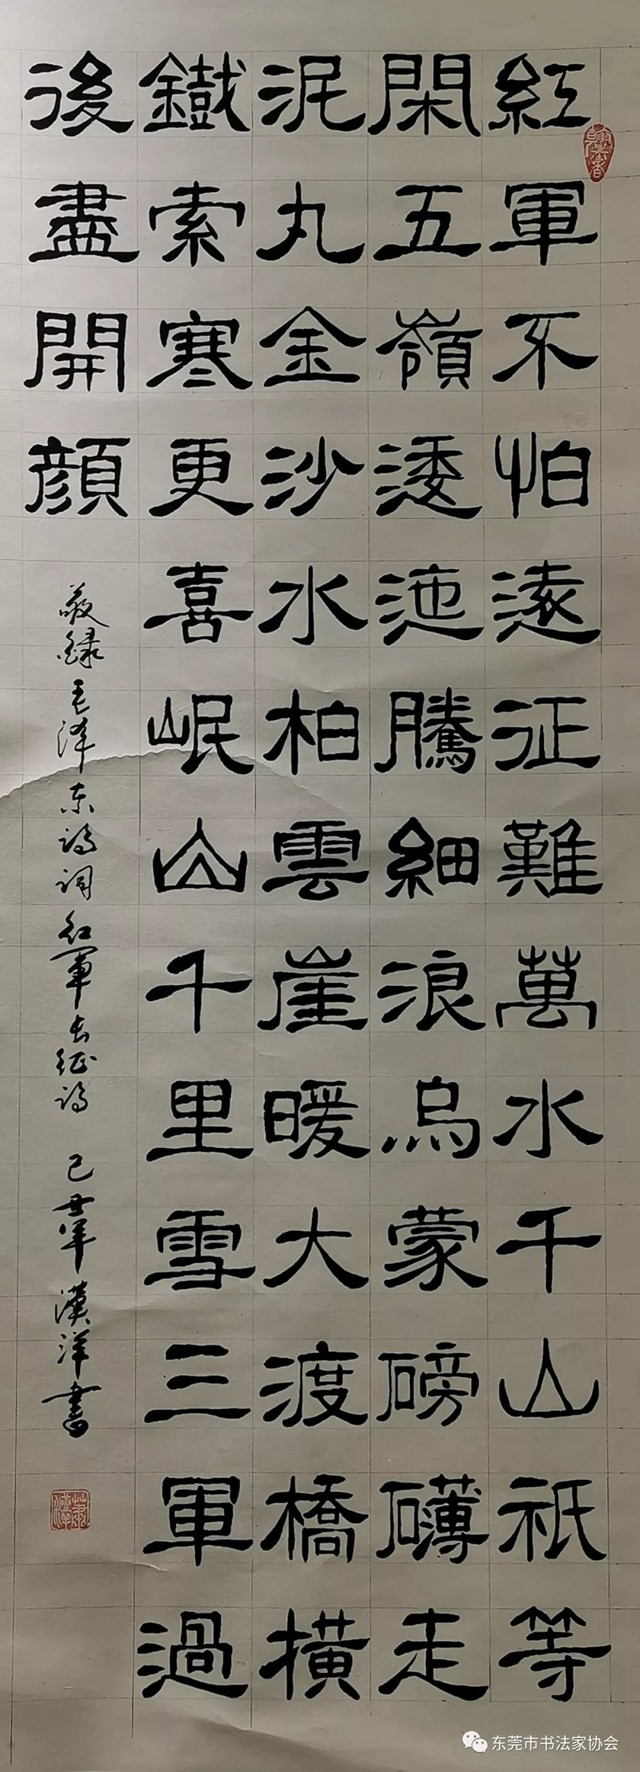 紅軍不怕遠征難萬水千山祇等
閑五嶺逶迤騰細浪烏蒙磅礴走
泥丸金沙水柏雲崖暖大渡橋橫
鐵索寒更喜岷山千里雪三軍過
後盡開顏
敬録毛泽东诗词红軍长征诗 己丑年 漢洋書
东莞市书法家协会